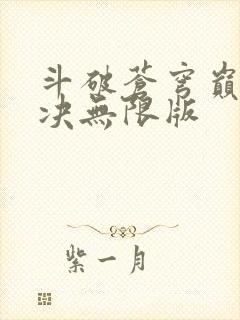 斗破蒼穹巔
决無限版
紫一月